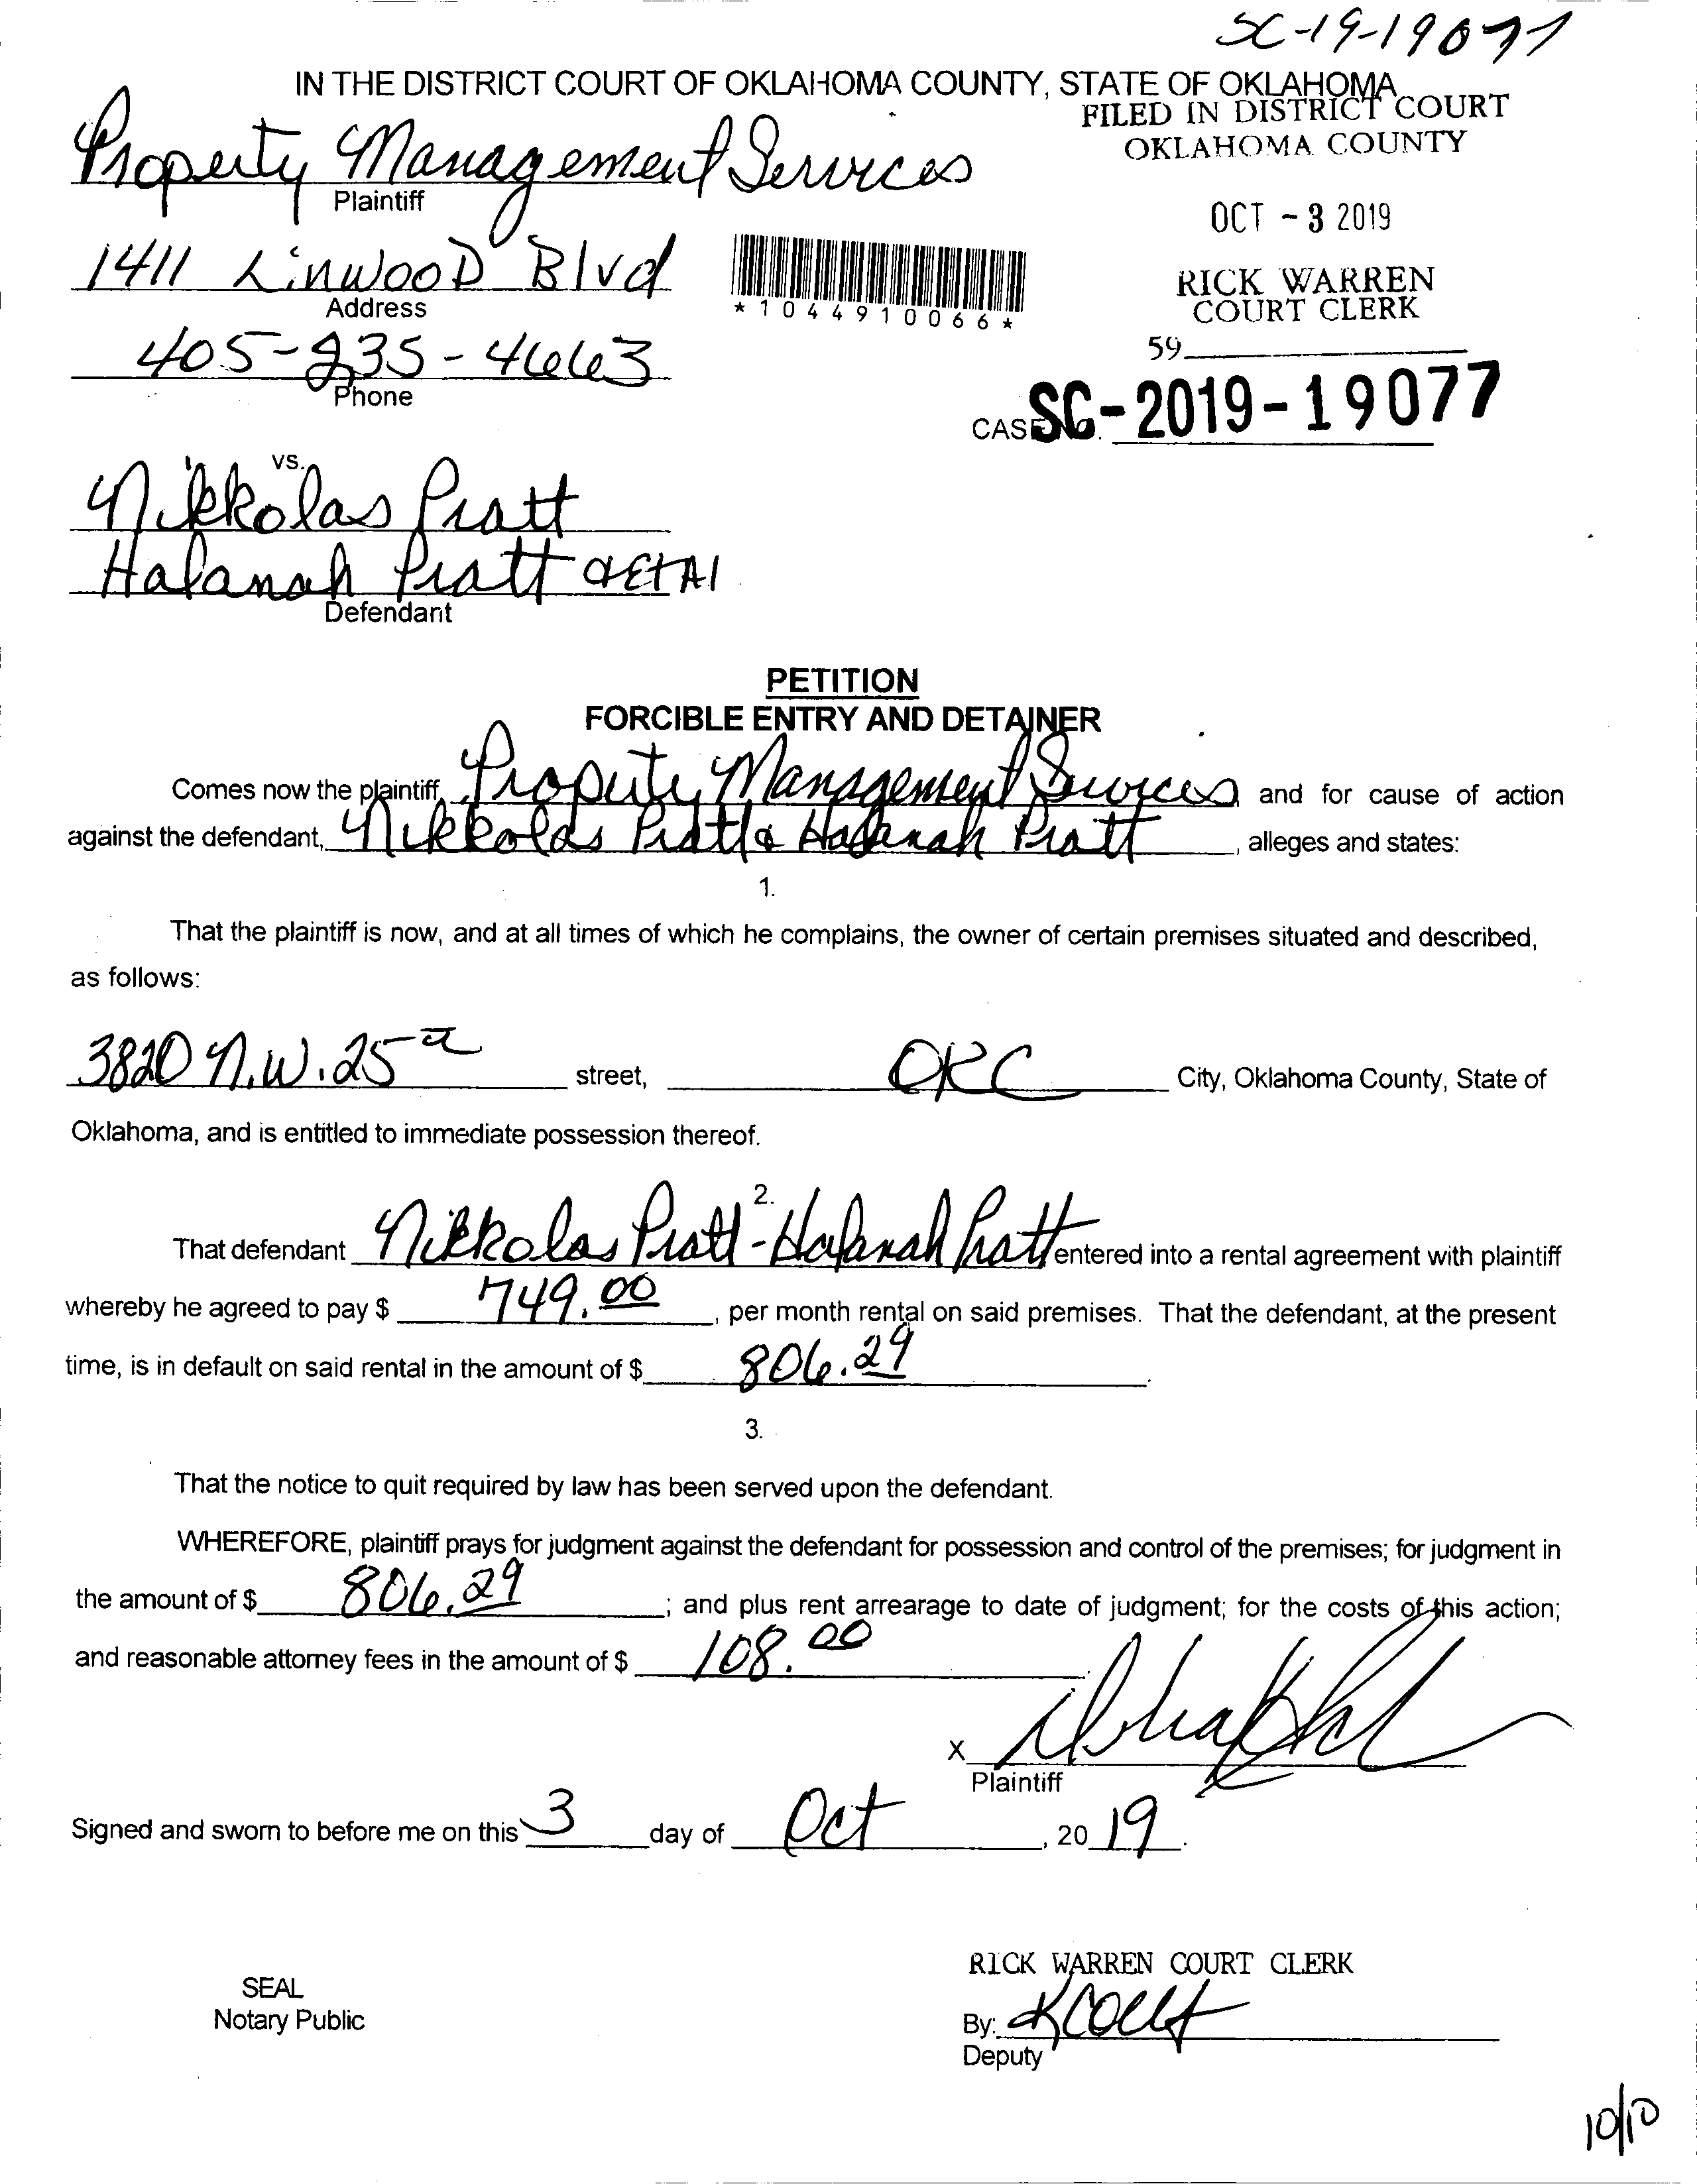 SC-19-19077
IN THE DISTRICT COURT OF OKLAHOMA COUNTY, STATE OF OKLAHOMA
FILED IN DISTRICT COURT
OKLAHOMA COUNTY
Property Management Services
Plaintiff
OCT - 3 2019
1411 Linwood Blvd
Address
*1044910066*
RICK WARREN
COURT CLERK
405-235-4663
Phone
59
CASE NO. SC-2019-19077
vs.
Nikkolas Pratt
Halanah Pratt & Et Al
Defendant
PETITION
FORCIBLE ENTRY AND DETAINER
Comes now the plaintiff, Property Management Services and for cause of action
against the defendant, Nikkolas Pratt & Halanah Pratt, alleges and states:
1.
That the plaintiff is now, and at all times of which he complains, the owner of certain premises situated and described,
as follows:
3820 N.W. 25 street, OKC City, Oklahoma County, State of
Oklahoma, and is entitled to immediate possession thereof.
2.
That defendant Nikkolas Pratt - Halanah Pratt entered into a rental agreement with plaintiff
whereby he agreed to pay $ 749.00, per month rental on said premises. That the defendant, at the present
time, is in default on said rental in the amount of $ 806.29.
3.
That the notice to quit required by law has been served upon the defendant.
WHEREFORE, plaintiff prays for judgment against the defendant for possession and control of the premises; for judgment in
the amount of $ 806.29; and plus rent arrearage to date of judgment; for the costs of this action;
and reasonable attorney fees in the amount of $ 108.00.
X
Plaintiff
Signed and sworn to before me on this 3 day of Oct, 2019.
RICK WARREN COURT CLERK
SEAL
Notary Public
By:
Deputy
10/10